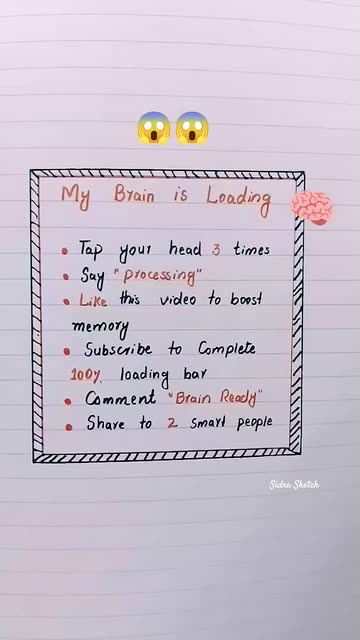 My Brain is Loading
• Tap your head 3 times
• Say "processing"
• Like this video to boost
memory
• Subscribe to Complete
100% loading bar
• Comment "Brain Ready"
• Share to 2 smart people
Sidra Sketch